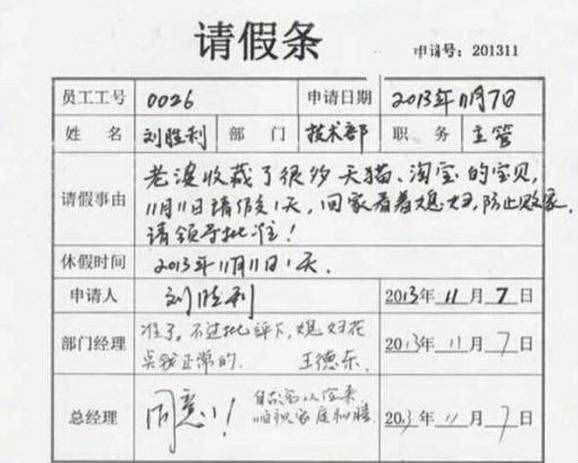 请假条
申请号：201311
员工工号 0026 申请日期 2013年11月7日
姓名 刘胜利 部门 技术部 职务 主管
请假事由 老婆收藏了很多天猫、淘宝的宝贝,
11月11日请假1天,回家看着媳妇,防止败家,
请领导批准!
休假时间 2013年11月11日1天.
申请人 刘胜利 2013年11月7日
部门经理 准了,不过批评下,媳妇花
钱正常的. 王德东. 2013年11月7日
总经理 同意! 2013年11月7日
家庭和睦